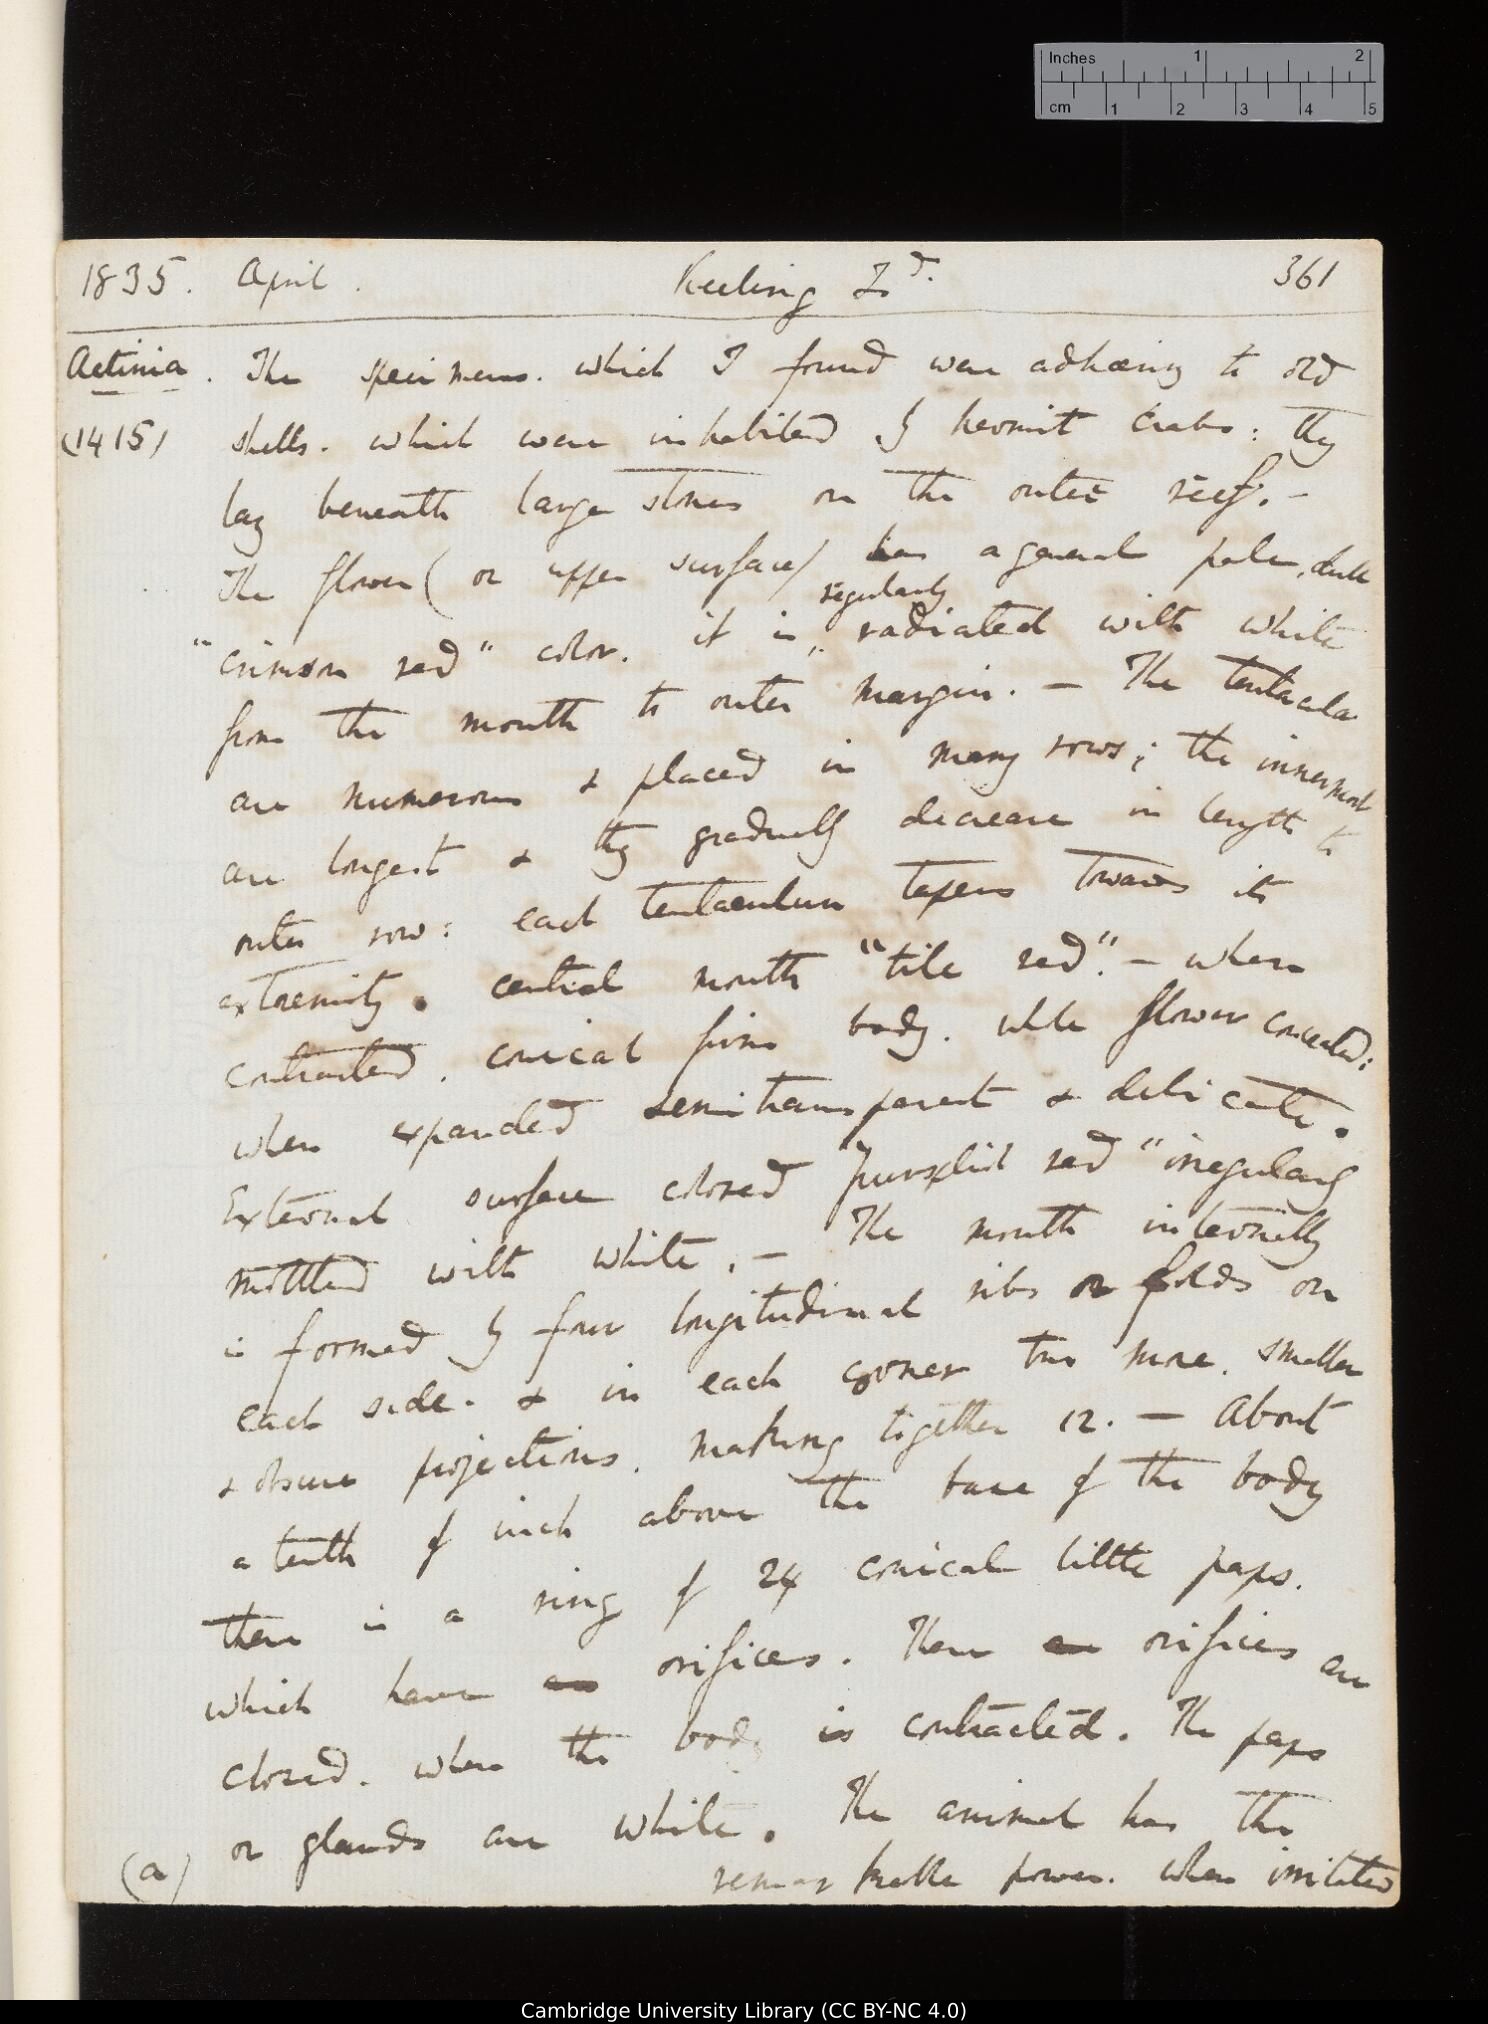 Inches 1 2
cm 1 2 3 4 5
1835. April. Keeling Id. 361
Actinia. The specimens. which I found were adhæring to old
(1415) shells. which were inhabited by hermit Crabs: they
lay beneath large stones on the outer reef. —
The flower (or upper surface) has a general pale, dull
regularly
"crimson red" color. it is radiated with white
from the mouth to outer margin. — The tentacula
are numerous & placed in many rows; the innermost
are longest & they gradually decrease in length to
outer row: each tentaculum tapers towards its
extremity. central mouth "tile red". — when
contracted, conical firm body. while flower concealed:
when expanded semitransparent & delicate.
External surface colored purplish red "irregularly
mottled with white. — The mouth internally
is formed by four longitudinal ribs or folds on
each side. & in each corner two more. smaller
& obscure projections. making together 12. — About
a tenth of inch above the base of the body
there is a ring of 24 conical little paps.
which have orifices. These orifices are
closed. when the body is contracted. The paps
or glands are white. The animal has the
(a) remarkable power. when irritated
Cambridge University Library (CC BY-NC 4.0)